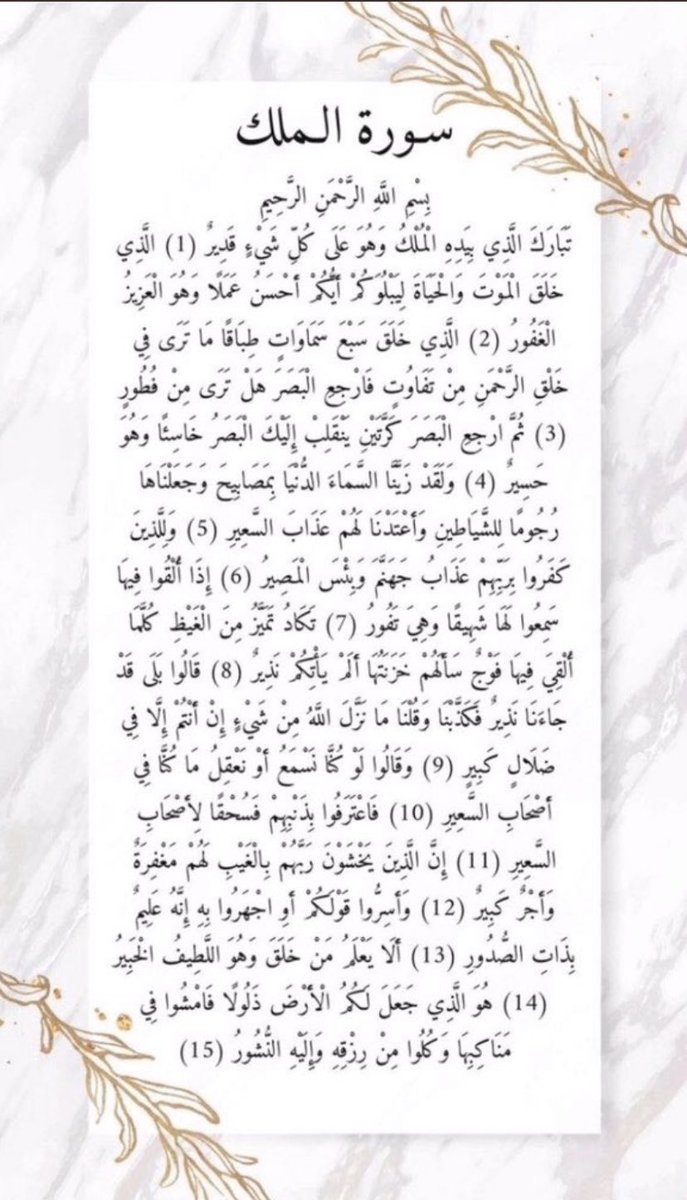 سورة الملك
بِسْمِ اللَّهِ الرَّحْمَنِ الرَّحِيمِ
تَبَارَكَ الَّذِي بِيَدِهِ الْمُلْكُ وَهُوَ عَلَى كُلِّ شَيْءٍ قَدِيرٌ (1) الَّذِي
خَلَقَ الْمَوْتَ وَالْحَيَاةَ لِيَبْلُوَكُمْ أَيُّكُمْ أَحْسَنُ عَمَلًا وَهُوَ الْعَزِيزُ
الْغَفُورُ (2) الَّذِي خَلَقَ سَبْعَ سَمَاوَاتٍ طِبَاقًا مَا تَرَى فِي
خَلْقِ الرَّحْمَنِ مِنْ تَفَاوُتٍ فَارْجِعِ الْبَصَرَ هَلْ تَرَى مِنْ فُطُورٍ
(3) ثُمَّ ارْجِعِ الْبَصَرَ كَرَّتَيْنِ يَنْقَلِبْ إِلَيْكَ الْبَصَرُ خَاسِئًا وَهُوَ
حَسِيرٌ (4) وَلَقَدْ زَيَّنَّا السَّمَاءَ الدُّنْيَا بِمَصَابِيحَ وَجَعَلْنَاهَا
رُجُومًا لِلشَّيَاطِينِ وَأَعْتَدْنَا لَهُمْ عَذَابَ السَّعِيرِ (5) وَلِلَّذِينَ
كَفَرُوا بِرَبِّهِمْ عَذَابُ جَهَنَّمَ وَبِئْسَ الْمَصِيرُ (6) إِذَا أُلْقُوا فِيهَا
سَمِعُوا لَهَا شَهِيقًا وَهِيَ تَفُورُ (7) تَكَادُ تَمَيَّزُ مِنَ الْغَيْظِ كُلَّمَا
أُلْقِيَ فِيهَا فَوْجٌ سَأَلَهُمْ خَزَنَتُهَا أَلَمْ يَأْتِكُمْ نَذِيرٌ (8) قَالُوا بَلَى قَدْ
جَاءَنَا نَذِيرٌ فَكَذَّبْنَا وَقُلْنَا مَا نَزَّلَ اللَّهُ مِنْ شَيْءٍ إِنْ أَنْتُمْ إِلَّا فِي
ضَلَالٍ كَبِيرٍ (9) وَقَالُوا لَوْ كُنَّا نَسْمَعُ أَوْ نَعْقِلُ مَا كُنَّا فِي
أَصْحَابِ السَّعِيرِ (10) فَاعْتَرَفُوا بِذَنْبِهِمْ فَسُحْقًا لِأَصْحَابِ
السَّعِيرِ (11) إِنَّ الَّذِينَ يَخْشَوْنَ رَبَّهُمْ بِالْغَيْبِ لَهُمْ مَغْفِرَةٌ
وَأَجْرٌ كَبِيرٌ (12) وَأَسِرُّوا قَوْلَكُمْ أَوِ اجْهَرُوا بِهِ إِنَّهُ عَلِيمٌ
بِذَاتِ الصُّدُورِ (13) أَلَا يَعْلَمُ مَنْ خَلَقَ وَهُوَ اللَّطِيفُ الْخَبِيرُ
(14) هُوَ الَّذِي جَعَلَ لَكُمُ الْأَرْضَ ذَلُولًا فَامْشُوا فِي
مَنَاكِبِهَا وَكُلُوا مِنْ رِزْقِهِ وَإِلَيْهِ النُّشُورُ (15)